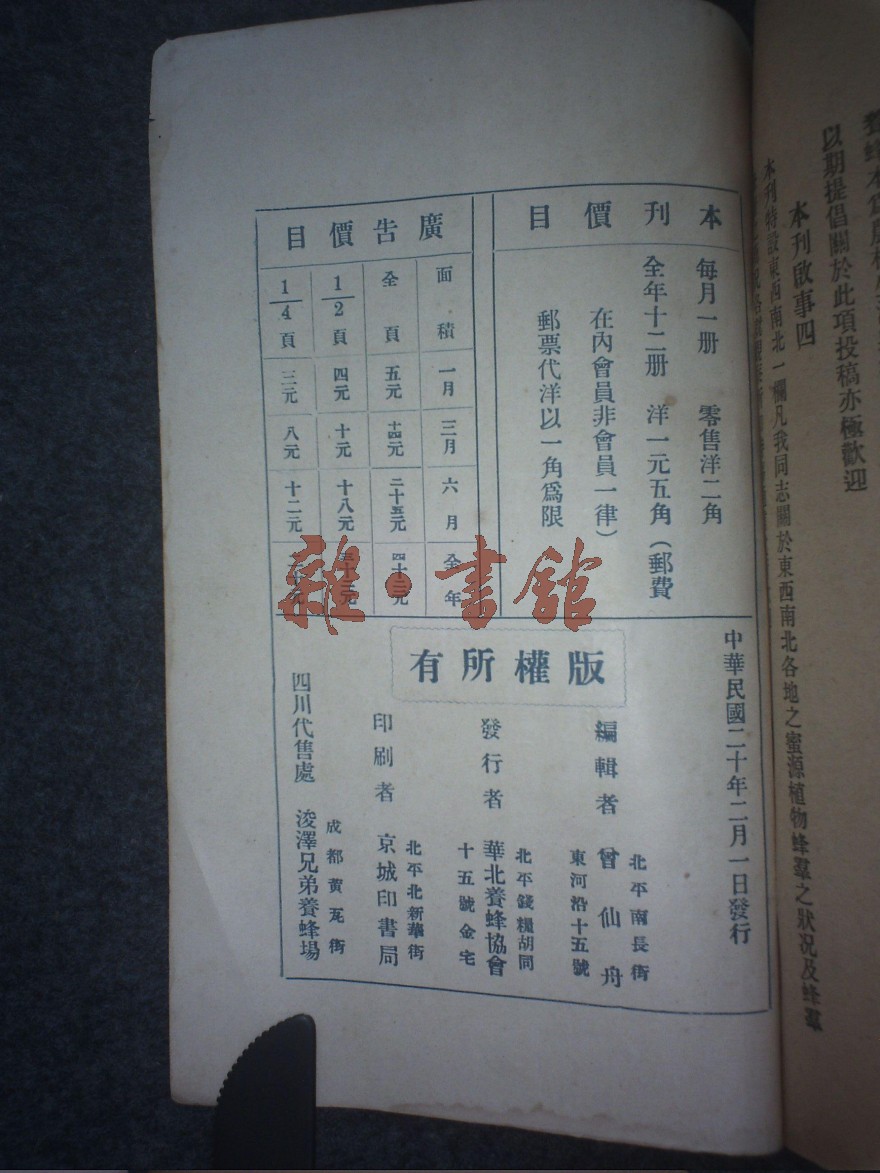 養蜂本爲農村
以期提倡關於此項投稿亦極歡迎
本刊啟事四
本刊特設東西南北一欄凡我同志關於東西南北各地之蜜源植物蜂羣之狀況及蜂羣
本刊價目
每月一册 零售洋二角
全年十二册 洋一元五角（郵費
在內會員非會員一律）
郵票代洋以一角爲限
廣告價目
面積 一月 三月 六月 全年
全頁 五元 十四元 二十五元 四十三元
1/2頁 四元 十元 十八元
1/4頁 三元 八元 十二元
雜·書館
中華民國二十年二月一日發行
版權所有
編輯者 曾仙舟
北平南長街
東河沿十五號
發行者 華北養蜂協會
北平錢糧胡同
十五號金宅
印刷者 京城印書局
北平北新華街
四川代售處 浚澤兄弟養蜂場
成都黄瓦街